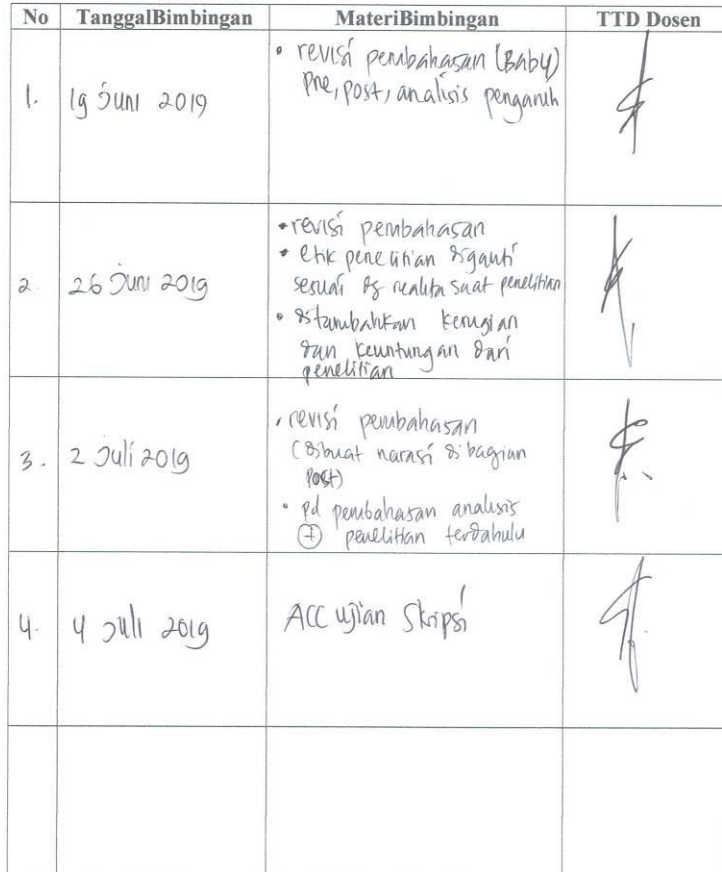 No TanggalBimbingan MateriBimbingan TTD Dosen
1. 19 Juni 2019
• revisi pembahasan (Bab 4)
pre, post, analisis pengaruh
2. 26 Juni 2019
• revisi pembahasan
• etik penelitian diganti
sesuai dg realita saat penelitian
• ditambahkan kerugian
dan keuntungan dari
penelitian
3. 2 Juli 2019
• revisi pembahasan
(dibuat narasi dibagian
post)
• pd pembahasan analisis
(+) penelitian terdahulu
4. 4 Juli 2019
ACC ujian Skripsi